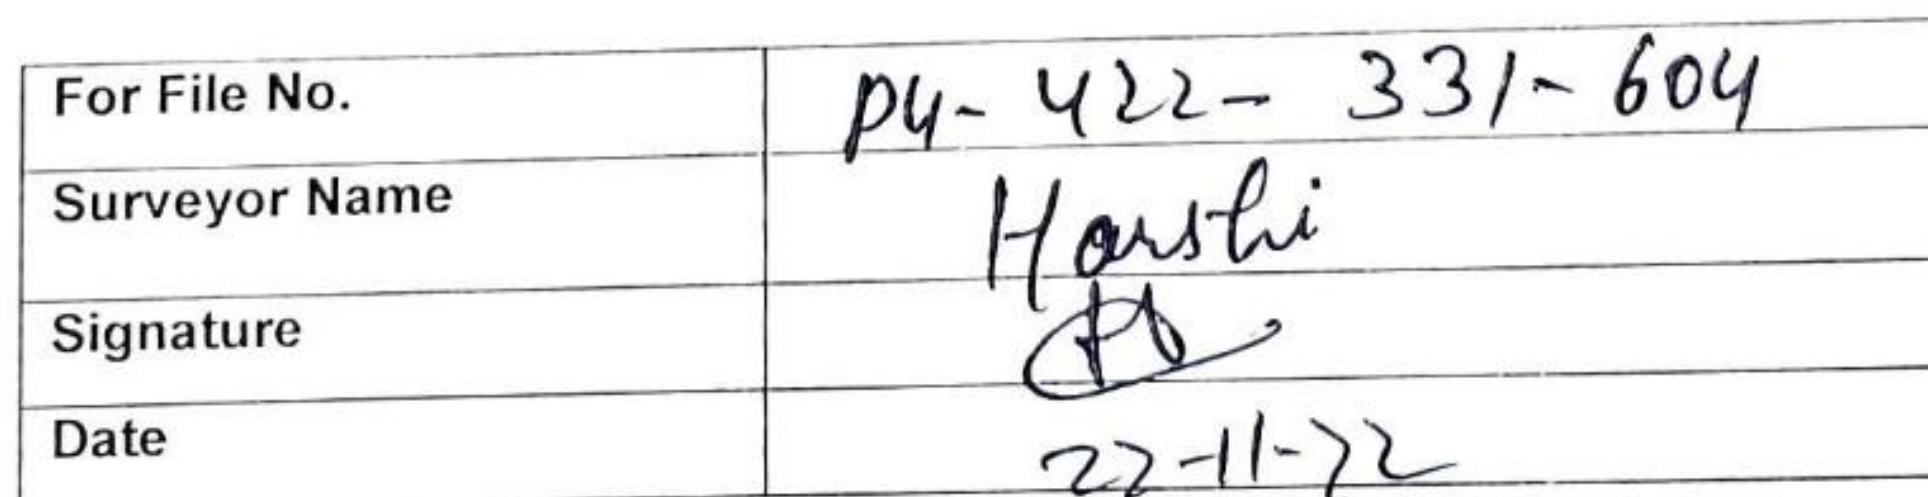 For File No. P4-422-331-604
Surveyor Name Harshi
Signature
Date 22-11-22